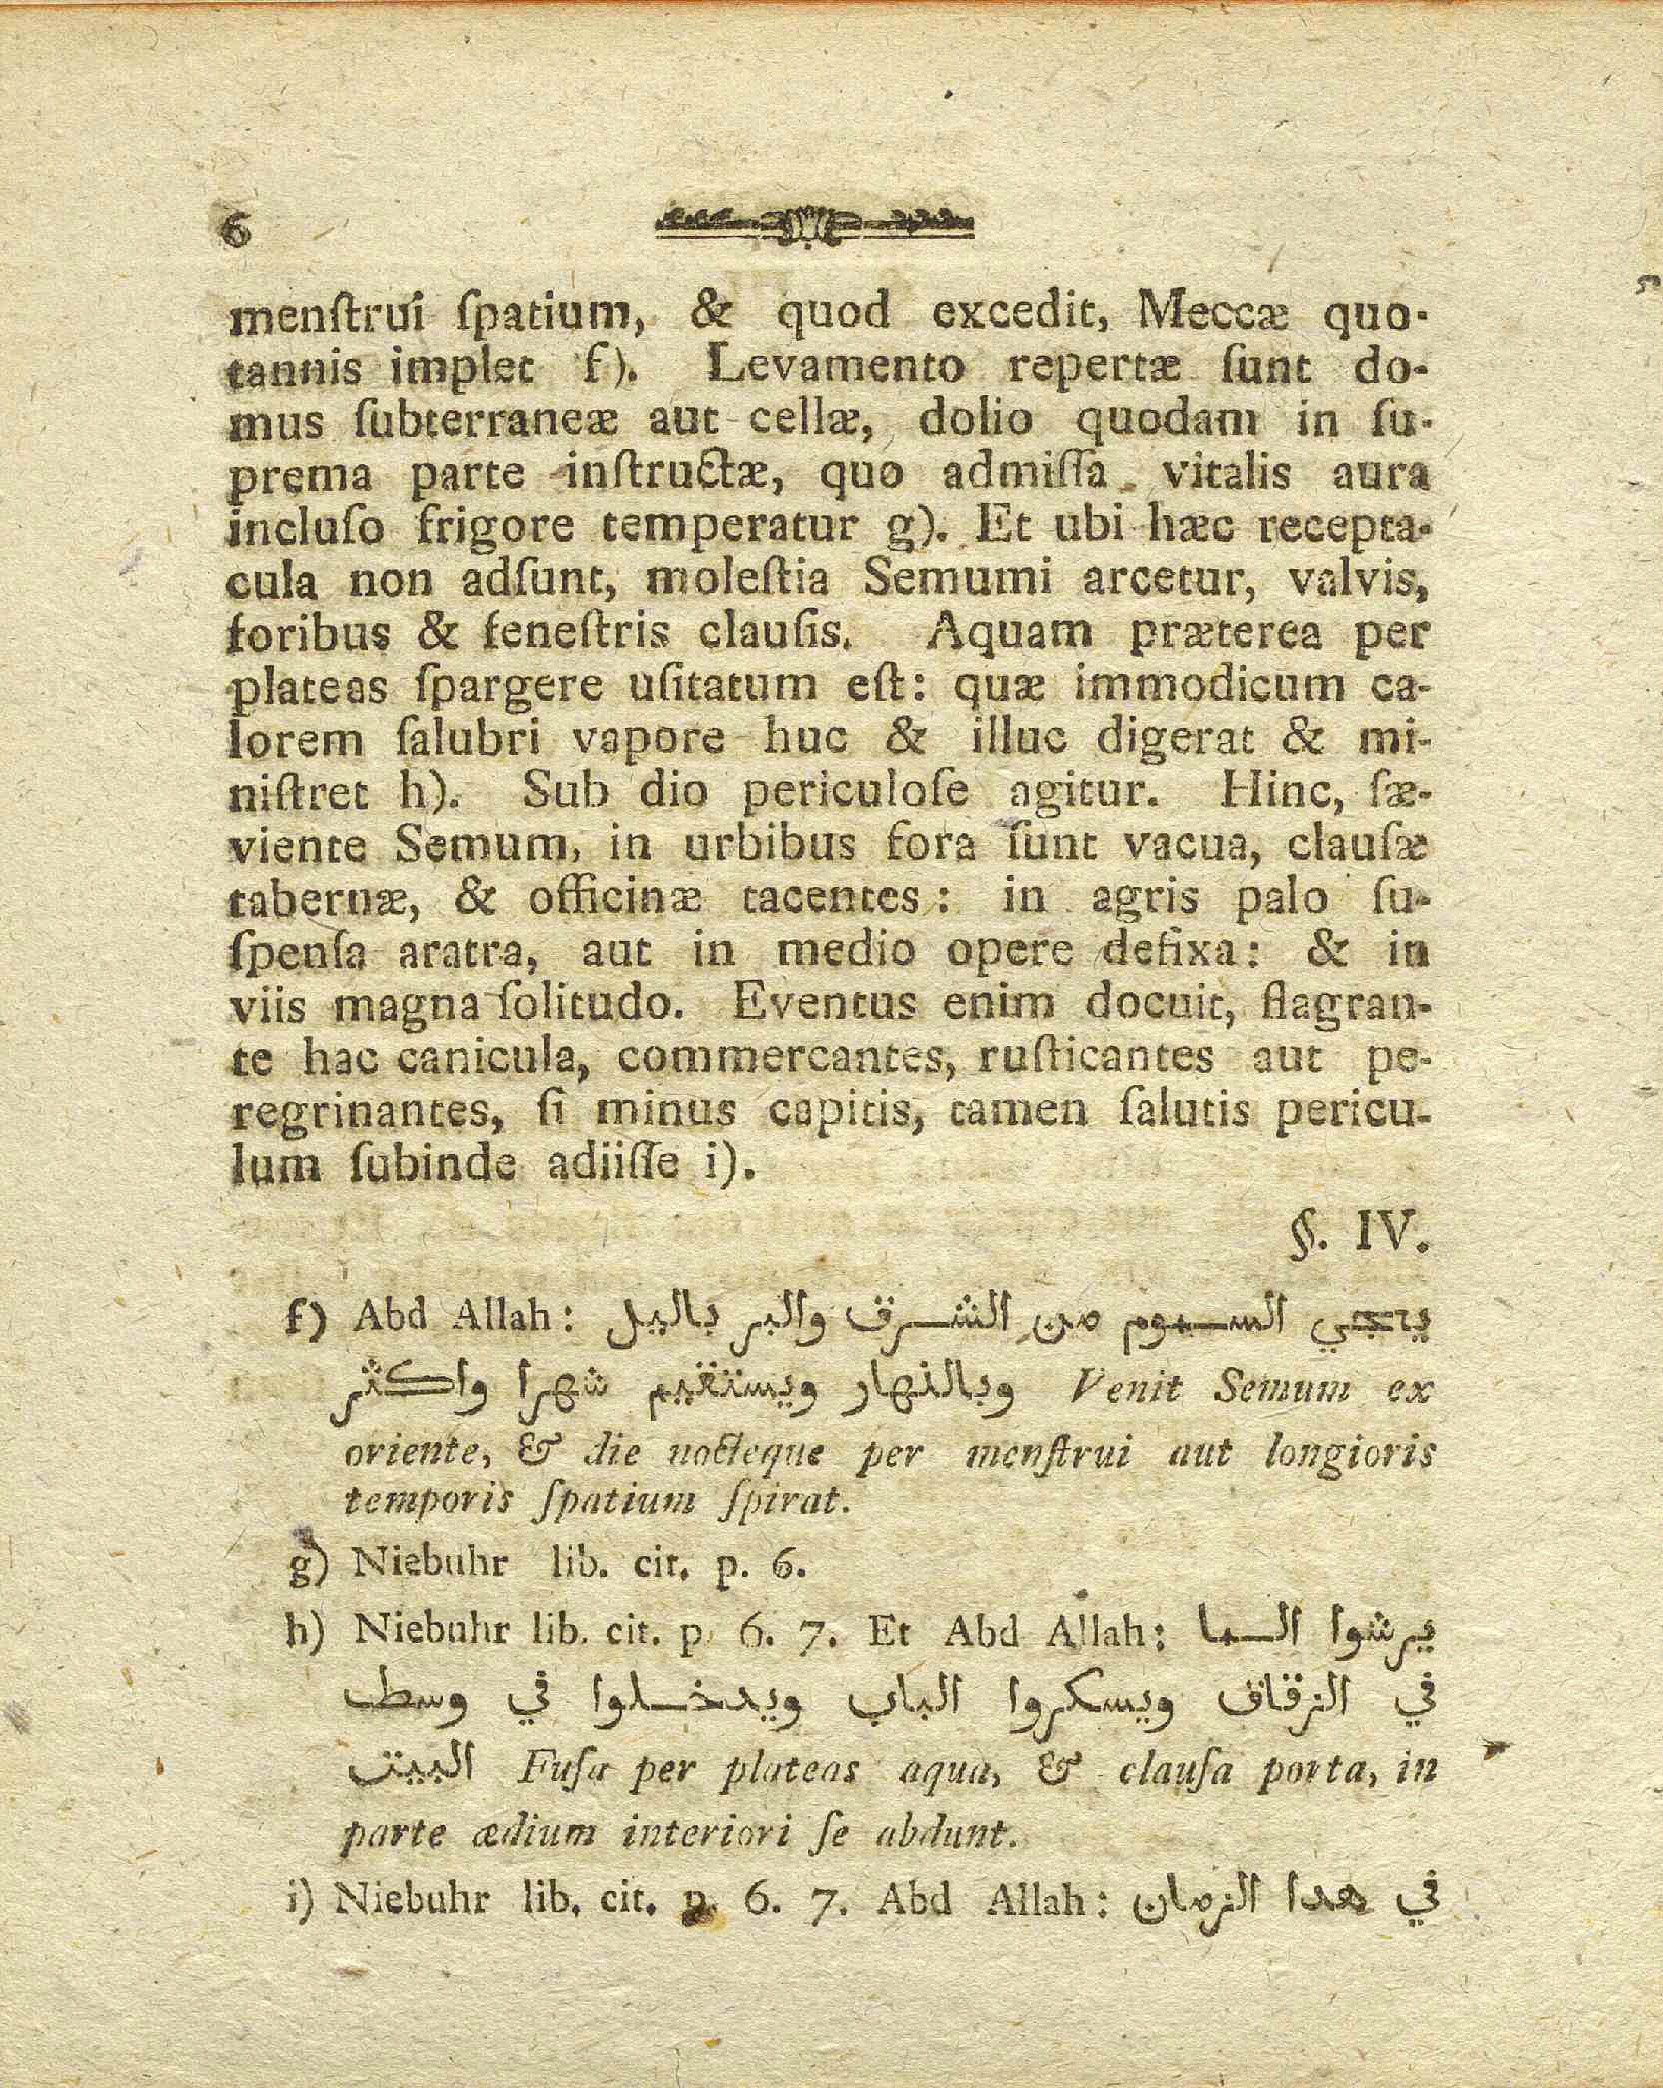 6
menſtrui ſpatium, & quod excedit, Meccæ quo-
tannis implet f). Levamento repertæ ſunt do-
mus ſubterraneæ aut cellæ, dolio quodam in ſu-
prema parte inſtructæ, quo admiſſa vitalis aura
incluſo frigore temperatur g). Et ubi hæc recepta-
cula non adſunt, moleſtia Semumi arcetur, valvis,
foribus & feneſtris clauſis. Aquam præterea per
plateas ſpargere uſitatum eſt: quæ immodicum ca-
lorem ſalubri vapore huc & illuc digerat & mi-
niſtret h). Sub dio periculoſe agitur. Hinc, ſæ-
viente Semum, in urbibus fora ſunt vacua, clauſæ
tabernæ, & officinæ tacentes: in agris palo ſu-
ſpenſa aratra, aut in medio opere defixa: & in
viis magna ſolitudo. Eventus enim docuit, flagran-
te hac canicula, commercantes, ruſticantes aut pe-
regrinantes, ſi minus capitis, tamen ſalutis pericu-
lum ſubinde adiiſſe i).
§. IV.
f) Abd Allah: يجي السموم من الشرق والبر باليل
وبالنهار ويستقيم شهرا واكثر Venit Semum ex
oriente, & die nocteque per menſtrui aut longioris
temporis ſpatium ſpirat.
g) Niebuhr lib. cit. p. 6.
h) Niebuhr lib. cit. p. 6. 7. Et Abd Allah: يرشوا الما
في الزقاق ويسكروا الباب ويدخلوا في وسط
البيت Fuſa per plateas aqua, & clauſa porta, in
parte ædium interiori ſe abdunt.
i) Niebuhr lib. cit. p. 6. 7. Abd Allah: في هدا الزمان